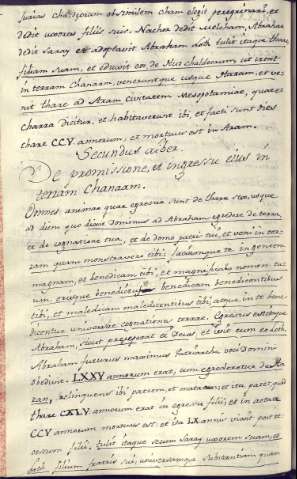 iurias chaldeorum obsimilem Cham elegit peregrinari, et
dedit uxores filiis suis. Nachor dedit Melcham, Abrahae
dedit Saray et adoptavit Abraham Loth tulit itaque Thare
filium suum, et eduxit eos de Hur chaldeorum ut irent
in terram Chanaam, veneruntque usque Haram, et ve
nit thare ad Aram civitatem Mesopotamiae, quae et
Charra dicitur, et habitaverunt ibi, et facti sunt dies
thare CCV annorum et mortuus est in Aram.
Secundus aiber.
De promissione, et ingressu eius in
terram Chanaam.
Omnes animae quae egressae sunt de
ad diem quo dixit dominus ad Abraham egredere de terra
et de cognatione tua, et de domo patris tui, et veni in ter
ram quam monstravero tibi, faciamque te in gentem
magnam, et benedicam tibi, et magnificabo nomen tu
um, erisque benedictus, benedicam benedicentibus
tibi, et maledicam maledicentibus tibi, atque in te bene
dicentur universae cognationes terrae. Egressus est itaque
Abraham, sicut praeceperat ei Deus, et ivit cum eo Loth
Abraham futurus maximus Patriarcha voci Domini
obedivit. LXXV annorum erat, cum egrederetur de Ha
ran, relinquens ibi patrem, et ita patet quod
thare CXLV annorum erat in egressu filii, et in aetate
CCV annorum mortuus est, et ita LX annis vixit post re
cessum filii, tulit itaque secum Saray uxorem suam, et
Loth filium fratris sui, universamque substantiam quam